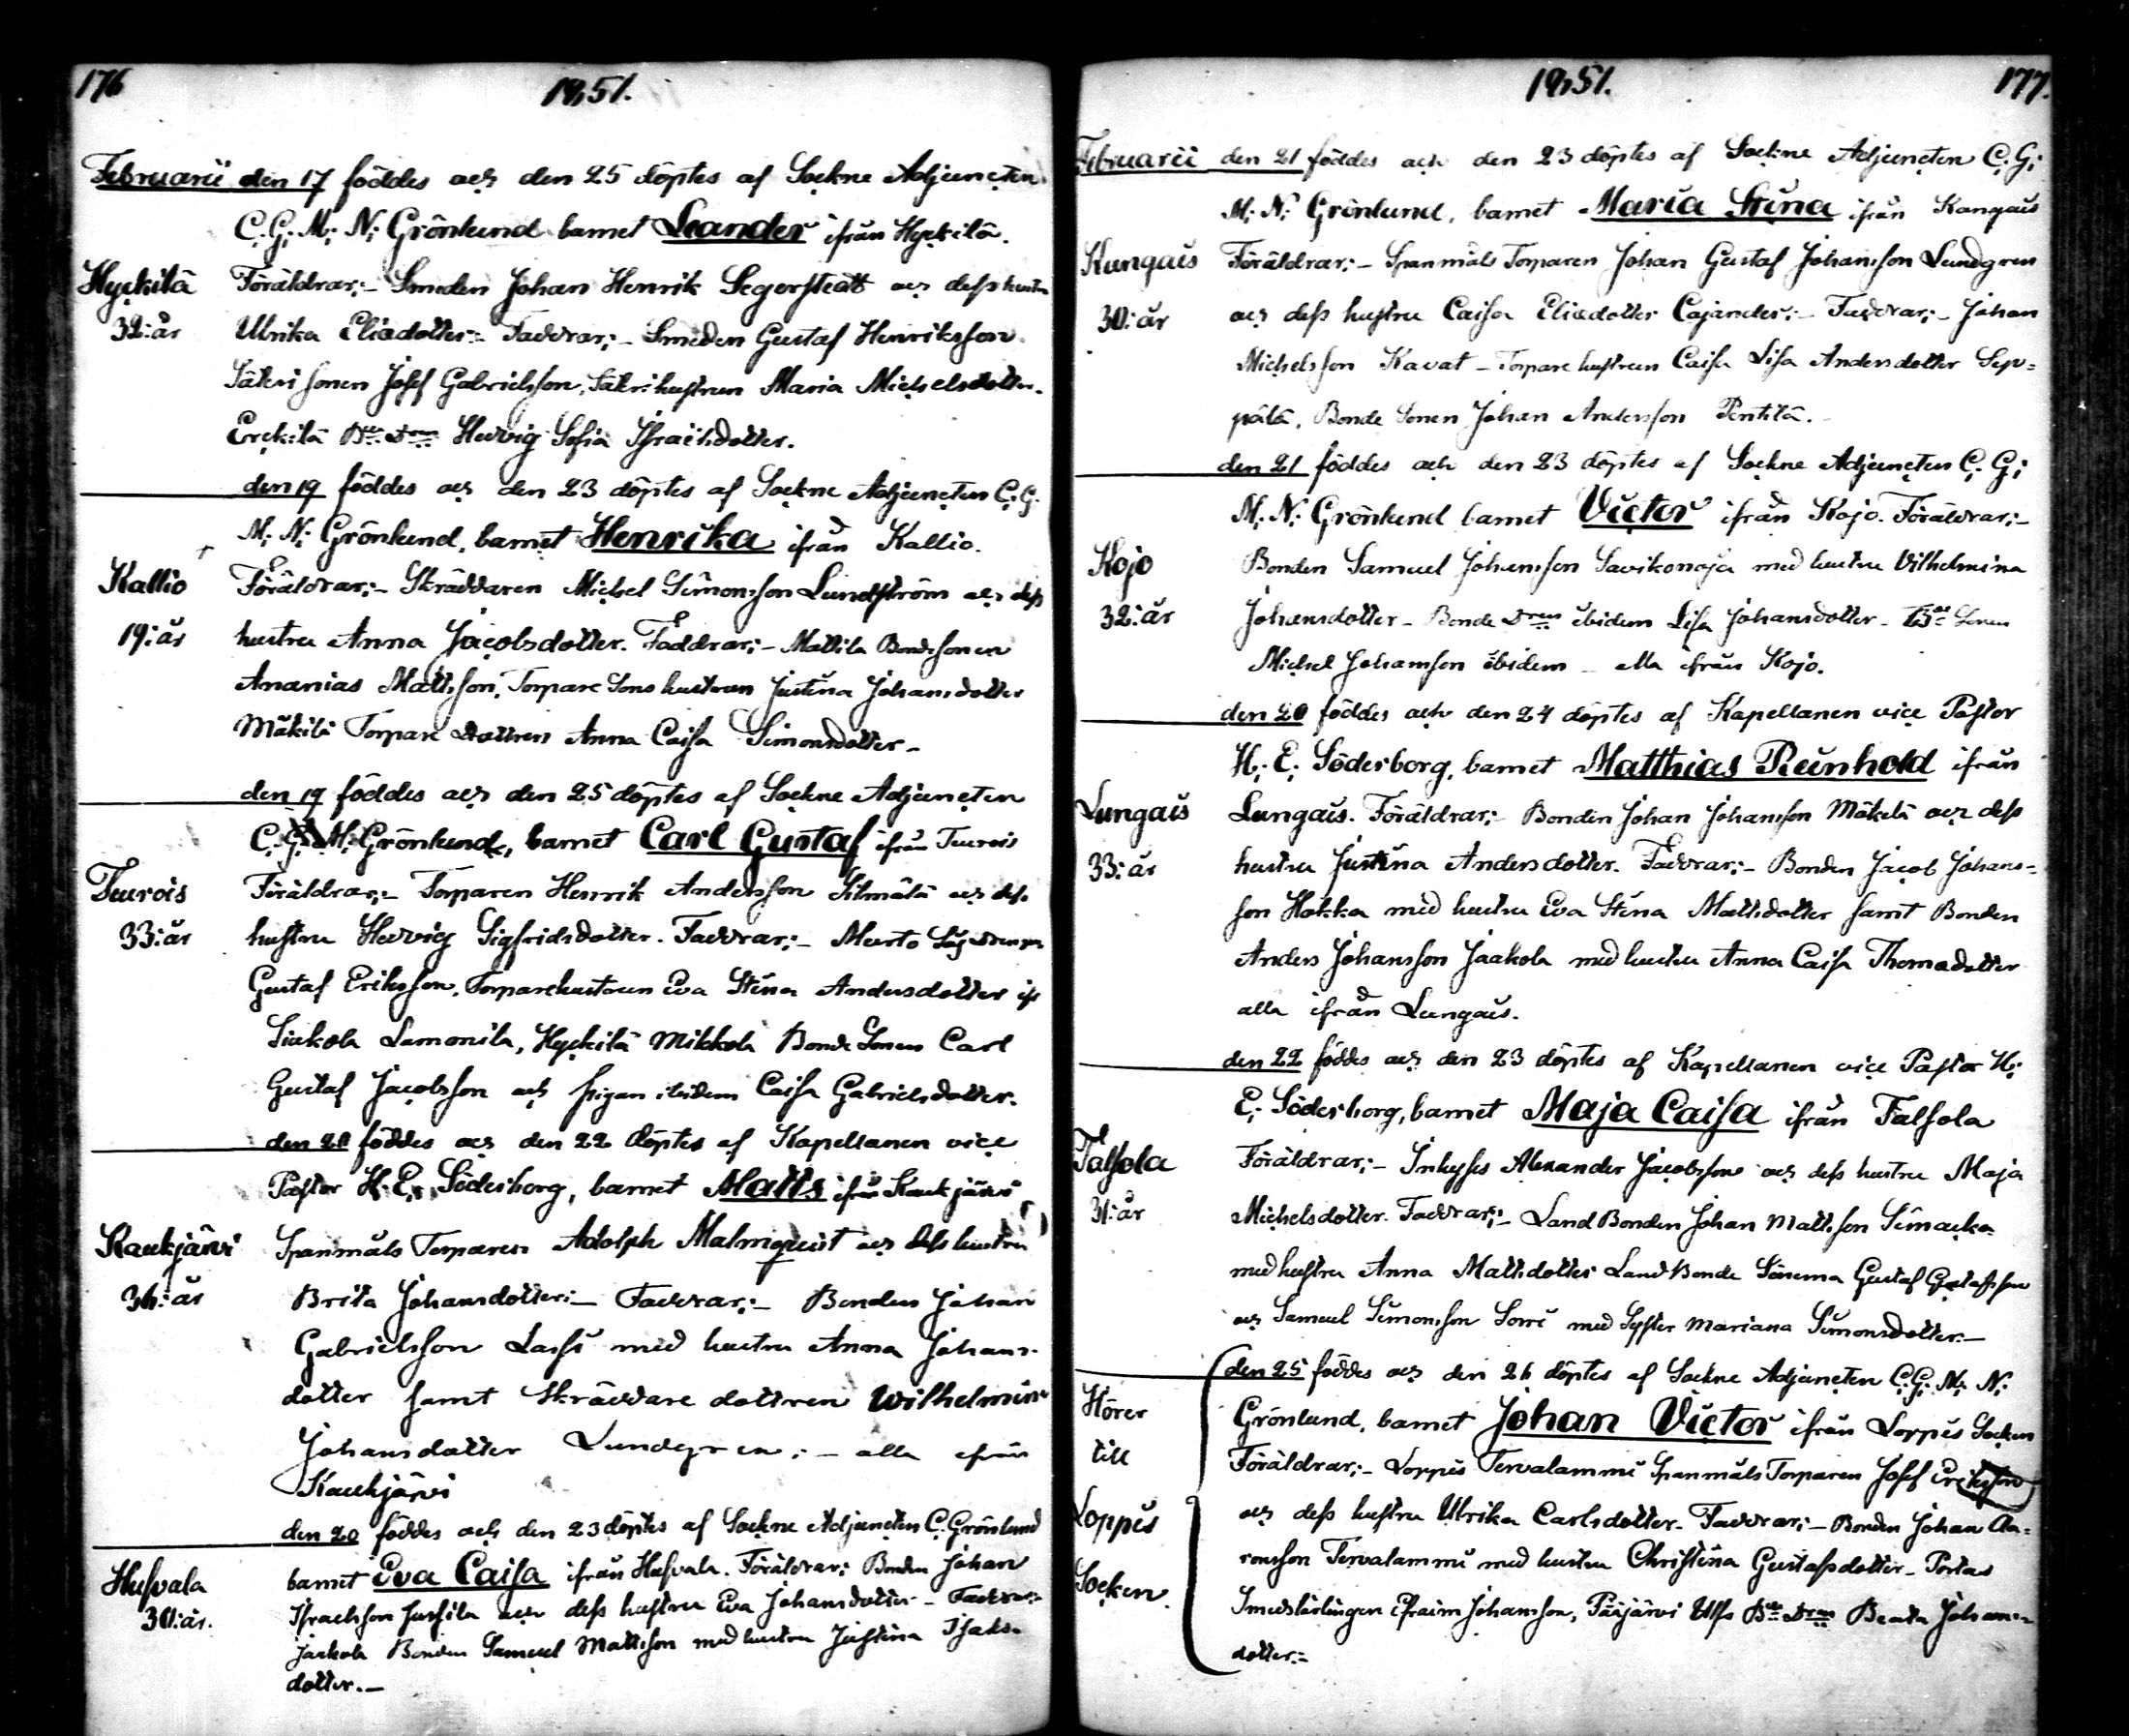 176
1851.
Februarii den 17 föddes och den 25 döptes af Sockne Adjuncten
C. G. M. N. Grönlund barnet Leander ifrån Hyckilä.
Hyckilä
32: år
Föräldrar:- Smeden Johan Henrik Segerstedt och dess hustru
Ulrika Eliædotter:- Faddrar:- Smeden Gustaf Henriksson
Säteri sonen Josef Gabrielsson, Säteri hustrun Maria Michelsdotter.
Erckilä Bde Dren Hedvig Sofia Israelsdotter.
den 19 föddes och den 23 döptes af Sockne Adjuncten C. G.
M. N. Grönlund, barnet Henrika ifrån Kallio.
Kallio
19: år
Föräldrar:- Skräddaren Michel Simonsson Lundström och dess
hustru Anna Jacobsdotter. Faddrar:- Mattila Bondsonen
Ananias Mattsson, Torpare Sons hustrun Justina Johansdotter
Mäkilä Torpare Dottren Anna Caisa Simonsdotter -
den 19 föddes och den 25 döptes af Sockne Adjuncten
C. G. M. Grönlund, barnet Carl Gustaf ifrån Teurois
Teurois
33: år
Föräldrar:- Torparen Henrik Andersson och dess
hustru Hedvig Sigfridsdotter. Faddrar:- Murto
Gustaf Eriksson, Torparehustrun Eva Stina Andersdotter
Lamonila, Hyckilä Mikkola Bonde Sonen Carl
Gustaf Jacobsson och pigan ibidem Caisa Gabrielsdotter.
den 20 föddes och den 22 döptes af Kapellanen vice
Pastor H. E. Söderborg, barnet Matts ifrån Kaukjärvi
Kaukjärvi
36: år
Spanmåls Torparen Adolph Malmquist och dess hustru
Brita Johansdotter:- Faddrar:- Bonden Johan
Gabrielsson Lassi med hustru Anna Johans-
dotter samt Skräddare dottren Wilhelmina
Johansdotter Lundegren:- alla ifrån
Kaukjärvi
den 20 föddes och den 23 döptes af Sockne Adjuncten C. Grönlund
barnet Eva Caisa ifrån Husvala. Föräldrar: Bonden Johan
Husvala
30: år.
Israelsson Jussila och dess hustru Eva Johansdotter - Faddrar:-
Jaakola Bonden Samuel Mattsson med hustru Justina Isaks-
dotter.-
1851.
177.
Februarii den 21 föddes och den 23 döptes af Sockne Adjuncten C. G.
M. N. Grönlund, barnet Maria Stina ifrån Kangais
Kangais
30: år
Föräldrar:- Spanmåls Torparen Johan Gustaf Johansson Lundgren
och dess hustru Caisa Eliædotter Cajander:- Faddrar:- Johan
Michelsson Kavat - Torpare hustrun Caisa Lisa Andersdotter Sep-
pälä, Bonde Sonen Johan Andersson Pentilä.
den 21 föddes och den 23 döptes af Sockne Adjuncten C. G.
M. N. Grönlund barnet Victor ifrån Kojo. Föräldrar:-
Kojo
32: år
Bonden Samuel Johansson Savikonoja med hustru Vilhelmina
Johansdotter - Bonde Dren ibidem Lisa Johansdotter - Bde Sonen
Michel Johansson ibidem - alla ifrån Kojo.
den 20 föddes och den 24 döptes af Kapellanen vice Pastor
H. E. Söderborg, barnet Matthias Reinhold ifrån
Lungais
33: år
Lungais. Föräldrar:- Bonden Johan Johansson Mäkelä och dess
hustru Justina Andersdotter. Faddrar:- Bonden Jacob Johans-
son Hokka med hustru Eva Stina Mattsdotter samt Bonden
Anders Johansson Jaakola med hustru Anna Caisa Thomædotter
alla ifrån Lungais.
den 22 föddes och den 23 döptes af Kapellanen vice Pastor H.
E. Söderborg, barnet Maja Caisa ifrån Talsola
Talsola
31: år
Föräldrar:- Inhyses Alexander Jacobsson och dess hustru Maja
Michelsdotter. Faddrar:- Land Bonden Johan Mattsson Simacka
med hustru Anna Mattsdotter Land Bonde Sönerna Gustaf Gustafsson
och Samuel Simonsson Sorri med Syster Mariana Simonsdotter:-
den 25 föddes och den 26 döptes af Sockne Adjuncten C. G. M. N.
Hörer
till
Loppis
Socken.
Grönlund, barnet Johan Victor ifrån Loppis Socken
Föräldrar:- Loppis Tervalammi Spanmåls Torparen Josef Ericksson
och dess hustru Ulrika Carlsdotter - Faddrar:- Bonden Johan Aa-
ronsson Tervalammi med hustru Christina Gustafsdotter - Portas
Smedslärlingen Efraim Johansson, Pääjärvi Ulfs Bde Dren Beata Johans-
dotter:-